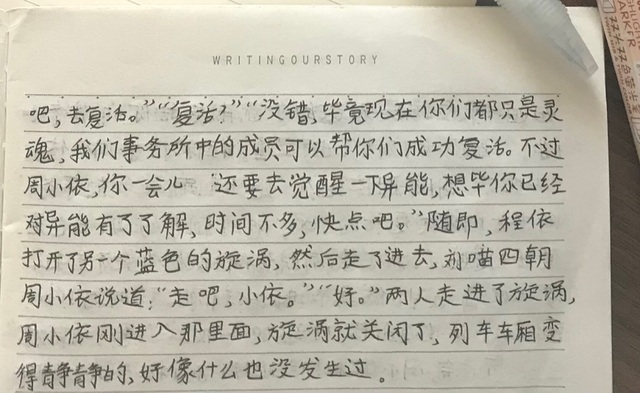 WRITINGOURSTORY
吧，去复活。”“复活？”“没错，毕竟现在你们都只是灵
魂，我们事务所中的成员可以帮你们成功复活。不过
周小依，你一会儿 还要去觉醒一下异能，想毕你已经
对异能有了了解，时间不多，快点吧。”随即，程依
打开了另一个蓝色的旋涡，然后走了进去，刘喵四朝
周小依说道：“走吧，小依。”“好。”两人走进了旋涡，
周小依刚进入那里面，旋涡就关闭了，列车车厢变
得静静的，好像什么也没发生过。